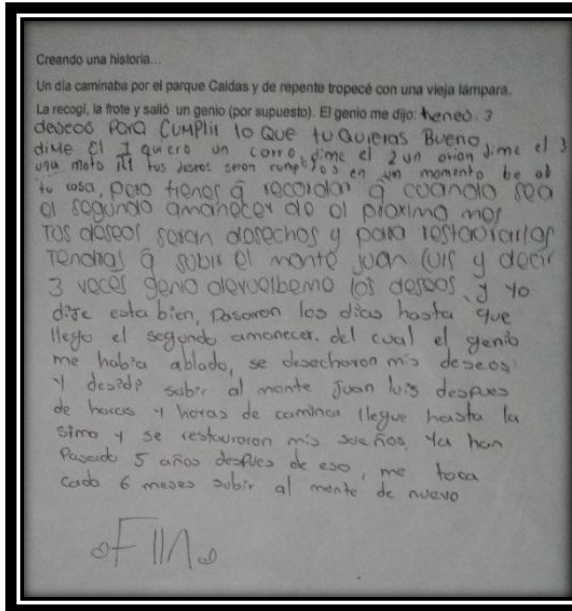 Creando una historia...
Un día caminaba por el parque Caldas y de repente tropecé con una vieja lámpara.
La recogí, la frote y salió un genio (por supuesto). El genio me dijo: tienes 3
deseos para cumplir lo que tu quieras Bueno
dime El 1 quiero un carro, dime el 2 un avion dime el 3
una moto tus deseos seron en un momento be ob
tu casa, pero tienes q recordar q cuando sea
el segundo amanecer de el proximo mes
Tus deseos seran desechos y para restaurarlos
Tendras q subir el monte juan luis y decir
3 veces genio devuelbeme los deseos, y yo
dije esta bien, pasaron los dias hasta que
llego el segundo amanecer. del cual el genio
me habia ablado, se desecharon mis deseos
Y desidi subir al monte Juan luis despues
de horas y horas de caminar llegue hasta la
sima y se restauraron mis sueños. Ya han
Pasado 5 años despues de eso, me toca
cada 6 meses subir al monte de nuevo
FIN